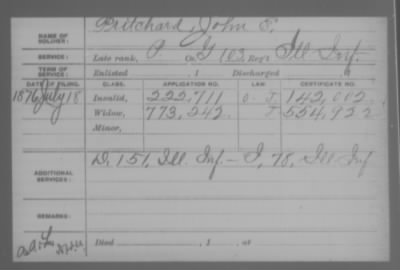 NAME OF SOLDIER: Pritchard, John E.
SERVICE: Late rank, P Co. G 103 Reg't Ill Inf.
TERM OF SERVICE: Enlisted , 1 Discharged
DATE OF FILING. CLASS. APPLICATION NO. LAW. CERTIFICATE NO.
1876 July 18 Invalid, 222,711 142,002
Widow, 773,242 554,922
Minor,
ADDITIONAL SERVICES: D, 151, Ill. Inf - I, 78, Ill Inf
REMARKS:
Died , 1 , at